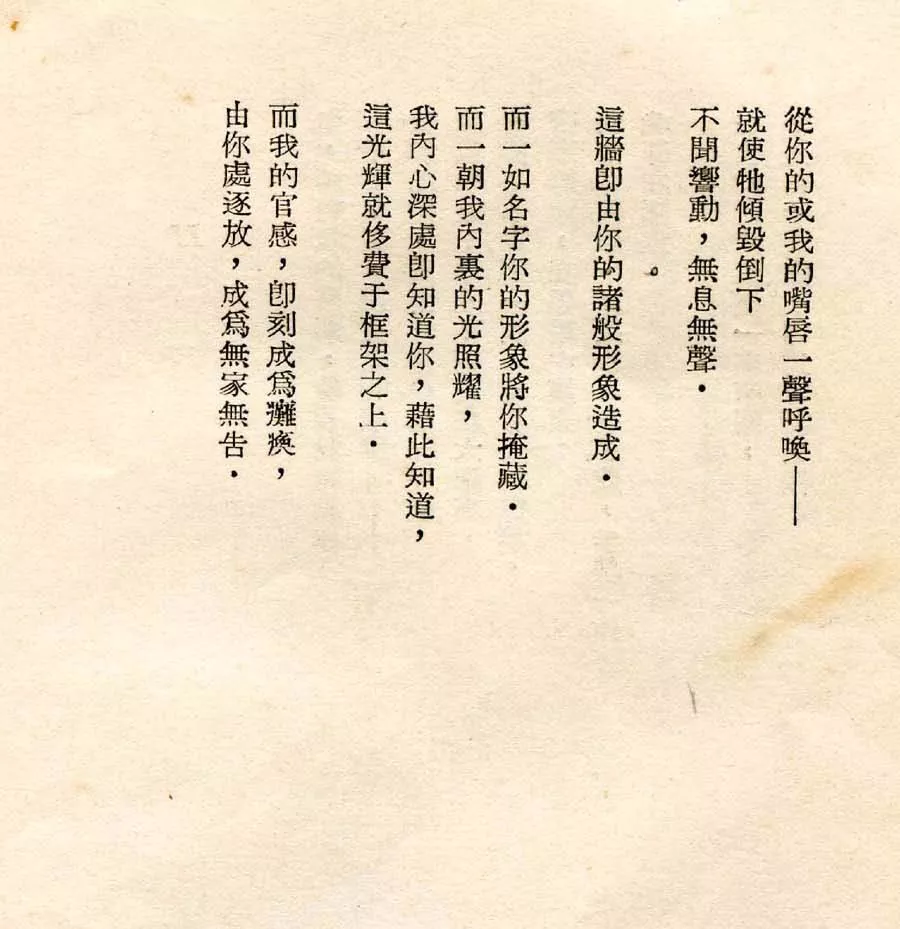 從你的或我的嘴唇一聲呼喚——
就使牠傾毀倒下
不聞響動，無息無聲．
這牆卽由你的諸般形象造成．
而一如名字你的形象將你掩藏．
而一朝我內裏的光照耀，
我內心深處卽知道你，藉此知道，
這光輝就侈費于框架之上．
而我的官感，卽刻成爲癱瘓，
由你處逐放，成爲無家無告．